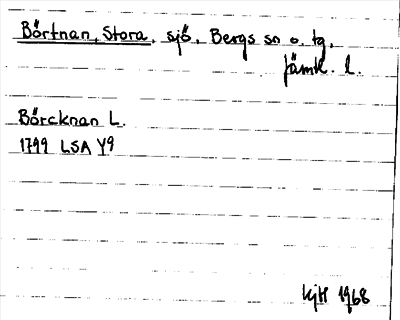 Börtnan, Stora, sjö, Bergs sn o. tg,
Jämtl. l.
Börcknan L.
1799 LSA Y9
KjH 1968